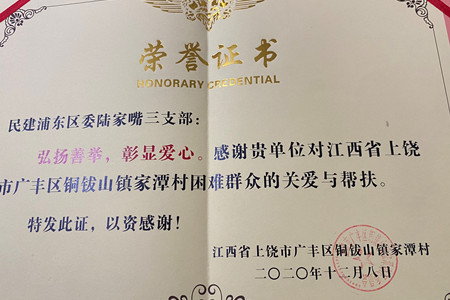 荣誉证书
HONORARY CREDENTIAL
民建浦东区委陆家嘴三支部：
弘扬善举，彰显爱心。感谢贵单位对江西省上饶
市广丰区铜钹山镇家潭村困难群众的关爱与帮扶。
特发此证，以资感谢！
江西省上饶市广丰区铜钹山镇家潭村
二〇二〇年十二月八日